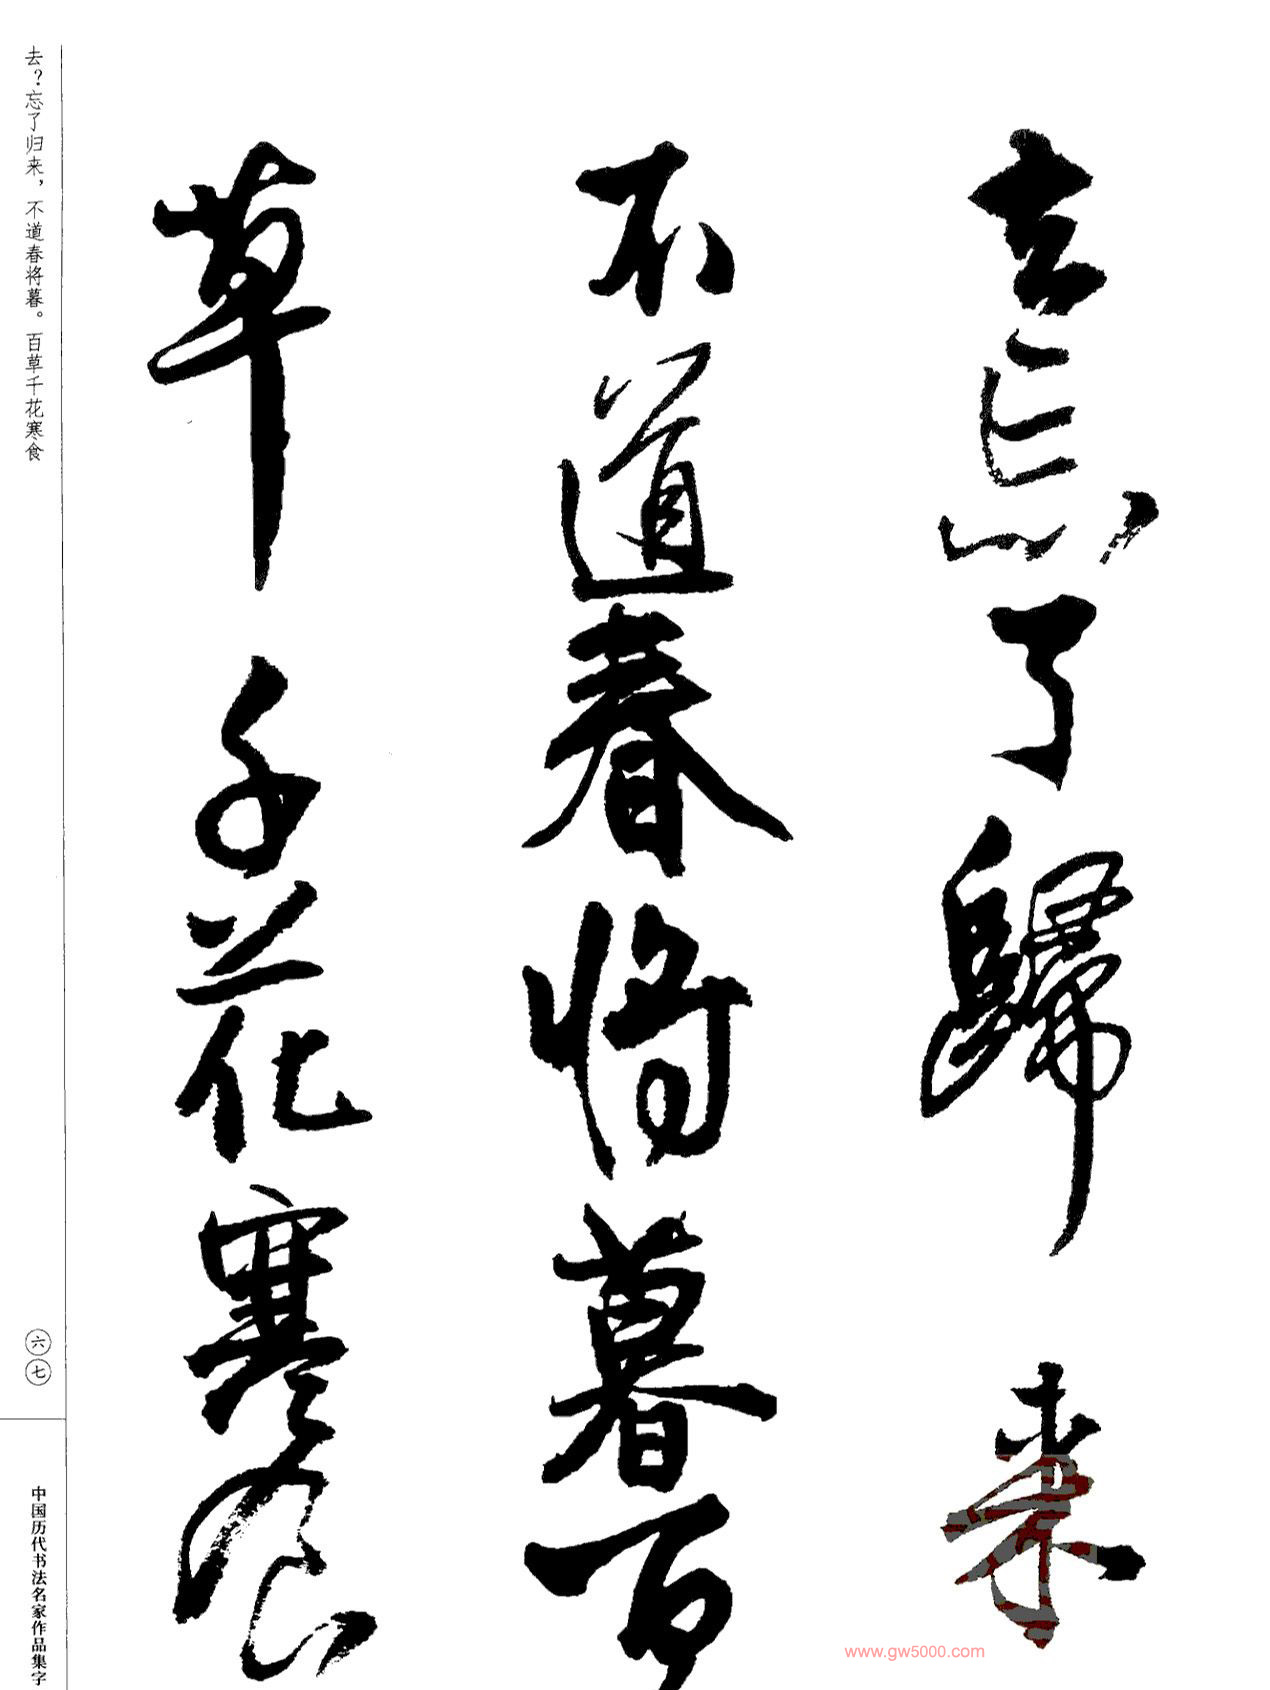 去忘了歸来
不道春将暮百
草千花寒食
去?忘了归来,不道春将暮。百草千花寒食
六七
中国历代书法名家作品集字
www.gw5000.com